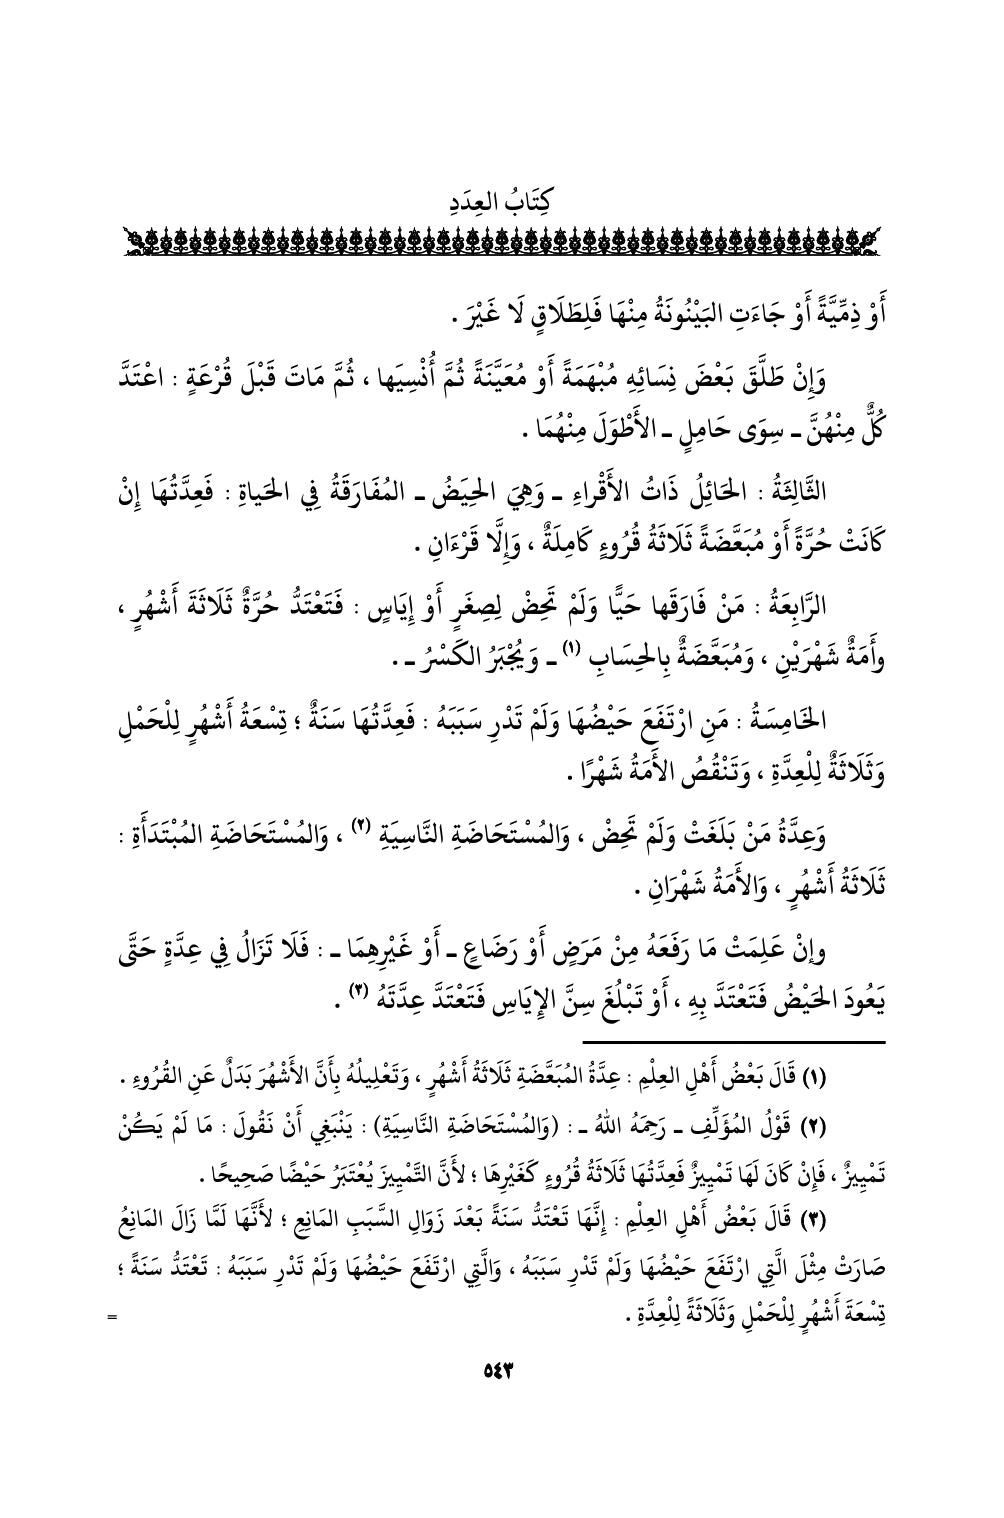 كِتَابُ العِدَدِ
أَوْ ذِمِّيَّةً أَوْ جَاءَتِ البَيْنُونَةُ مِنْهَا فَلِطَلَاقٍ لَا غَيْرَ .
وَإِنْ طَلَّقَ بَعْضَ نِسَائِهِ مُبْهَمَةً أَوْ مُعَيَّنَةً ثُمَّ أُنْسِيَها ، ثُمَّ مَاتَ قَبْلَ قُرْعَةٍ : اعْتَدَّ
كُلٌّ مِنْهُنَّ ـ سِوَى حَامِلٍ ـ الأَطْوَلَ مِنْهُمَا .
الثَّالِثَةُ : الحَائِلُ ذَاتُ الأَقْراءِ ـ وَهِيَ الحِيَضُ ـ المُفَارَقَةُ فِي الحَياةِ : فَعِدَّتُهَا إِنْ
كَانَتْ حُرَّةً أَوْ مُبَعَّضَةً ثَلَاثَةُ قُرُوءٍ كَامِلَةٌ ، وَإِلَّا قَرْءَانِ .
الرَّابِعَةُ : مَنْ فَارَقَها حَيًّا وَلَمْ تَحِضْ لِصِغَرٍ أَوْ إِيَاسٍ : فَتَعْتَدُّ حُرَّةٌ ثَلَاثَةَ أَشْهُرٍ ،
وأَمَةٌ شَهْرَيْنِ ، وَمُبَعَّضَةٌ بِالحِسَابِ (١) ـ وَيُجْبَرُ الكَسْرُ ـ .
الخَامِسَةُ : مَنِ ارْتَفَعَ حَيْضُهَا وَلَمْ تَدْرِ سَبَبَهُ : فَعِدَّتُهَا سَنَةٌ ؛ تِسْعَةُ أَشْهُرٍ لِلْحَمْلِ
وَثَلَاثَةٌ لِلْعِدَّةِ ، وَتَنْقُصُ الأَمَةُ شَهْرًا .
وَعِدَّةُ مَنْ بَلَغَتْ وَلَمْ تَحِضْ ، وَالمُسْتَحَاضَةِ النَّاسِيَةِ (٢) ، وَالمُسْتَحَاضَةِ المُبْتَدَأَةِ :
ثَلَاثَةُ أَشْهُرٍ ، وَالأَمَةُ شَهْرَانِ .
وإنْ عَلِمَتْ مَا رَفَعَهُ مِنْ مَرَضٍ أَوْ رَضَاعٍ ـ أَوْ غَيْرِهِمَا ـ : فَلَا تَزَالُ فِي عِدَّةٍ حَتَّى
يَعُودَ الحَيْضُ فَتَعْتَدَّ بِهِ ، أَوْ تَبْلُغَ سِنَّ الإِيَاسِ فَتَعْتَدَّ عِدَّتَهُ (٣) .
(١) قَالَ بَعْضُ أَهْلِ العِلْمِ : عِدَّةُ المُبَعَّضَةِ ثَلَاثَةُ أَشْهُرٍ ، وَتَعْلِيلُهُ بِأَنَّ الأَشْهُرَ بَدَلٌ عَنِ القُرُوءِ .
(٢) قَوْلُ المُؤَلِّفِ ـ رَحِمَهُ اللهُ ـ : (وَالمُسْتَحَاضَةِ النَّاسِيَةِ) : يَنْبَغِي أَنْ نَقُولَ : مَا لَمْ يَكُنْ
تَمْيِيزٌ ، فَإِنْ كَانَ لَهَا تَمْيِيزٌ فَعِدَّتُهَا ثَلَاثَةُ قُرُوءٍ كَغَيْرِهَا ؛ لأَنَّ التَّمْيِيزَ يُعْتَبَرُ حَيْضًا صَحِيحًا .
(٣) قَالَ بَعْضُ أَهْلِ العِلْمِ : إِنَّهَا تَعْتَدُّ سَنَةً بَعْدَ زَوَالِ السَّبَبِ المَانِعِ ؛ لأَنَّهَا لَمَّا زَالَ المَانِعُ
صَارَتْ مِثْلَ الَّتِي ارْتَفَعَ حَيْضُهَا وَلَمْ تَدْرِ سَبَبَهُ ، وَالَّتِي ارْتَفَعَ حَيْضُهَا وَلَمْ تَدْرِ سَبَبَهُ : تَعْتَدُّ سَنَةً ؛
تِسْعَةَ أَشْهُرٍ لِلْحَمْلِ وَثَلَاثَةً لِلْعِدَّةِ . =
٥٤٣